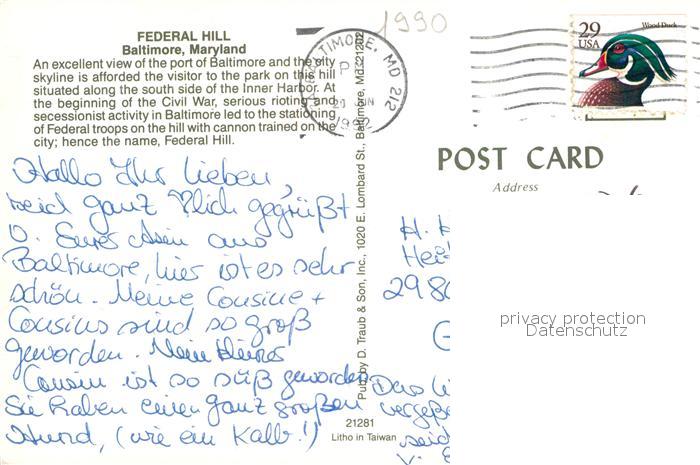 1990
FEDERAL HILL
Baltimore, Maryland
An excellent view of the port of Baltimore and the city
skyline is afforded the visitor to the park on this hill
situated along the south side of the Inner Harbor. At
the beginning of the Civil War, serious rioting and
secessionist activity in Baltimore led to the stationing
of Federal troops on the hill with cannon trained on the
city; hence the name, Federal Hill.
BALTIMORE, MD 212
PM
20 JUN
1992
29
USA
Wood Duck
POST CARD
Address
Hallo Ihr Lieben,
seid ganz ♡lich gegrüßt
v. Eurer aus
Baltimore, hier ist es sehr
schön. Meine Cousine +
Cousins sind so groß
geworden. Mein kleines
Cousin ist so süß geworden
Sie haben einen ganz großen
Hund, (wie ein Kalb!)
Pub. by D. Traub & Son, Inc., 1020 E. Lombard St., Baltimore, Md. 21202
21281
Litho in Taiwan
H.
Hei
298
G
Das
vergeß
seid
v.
privacy protection
Datenschutz